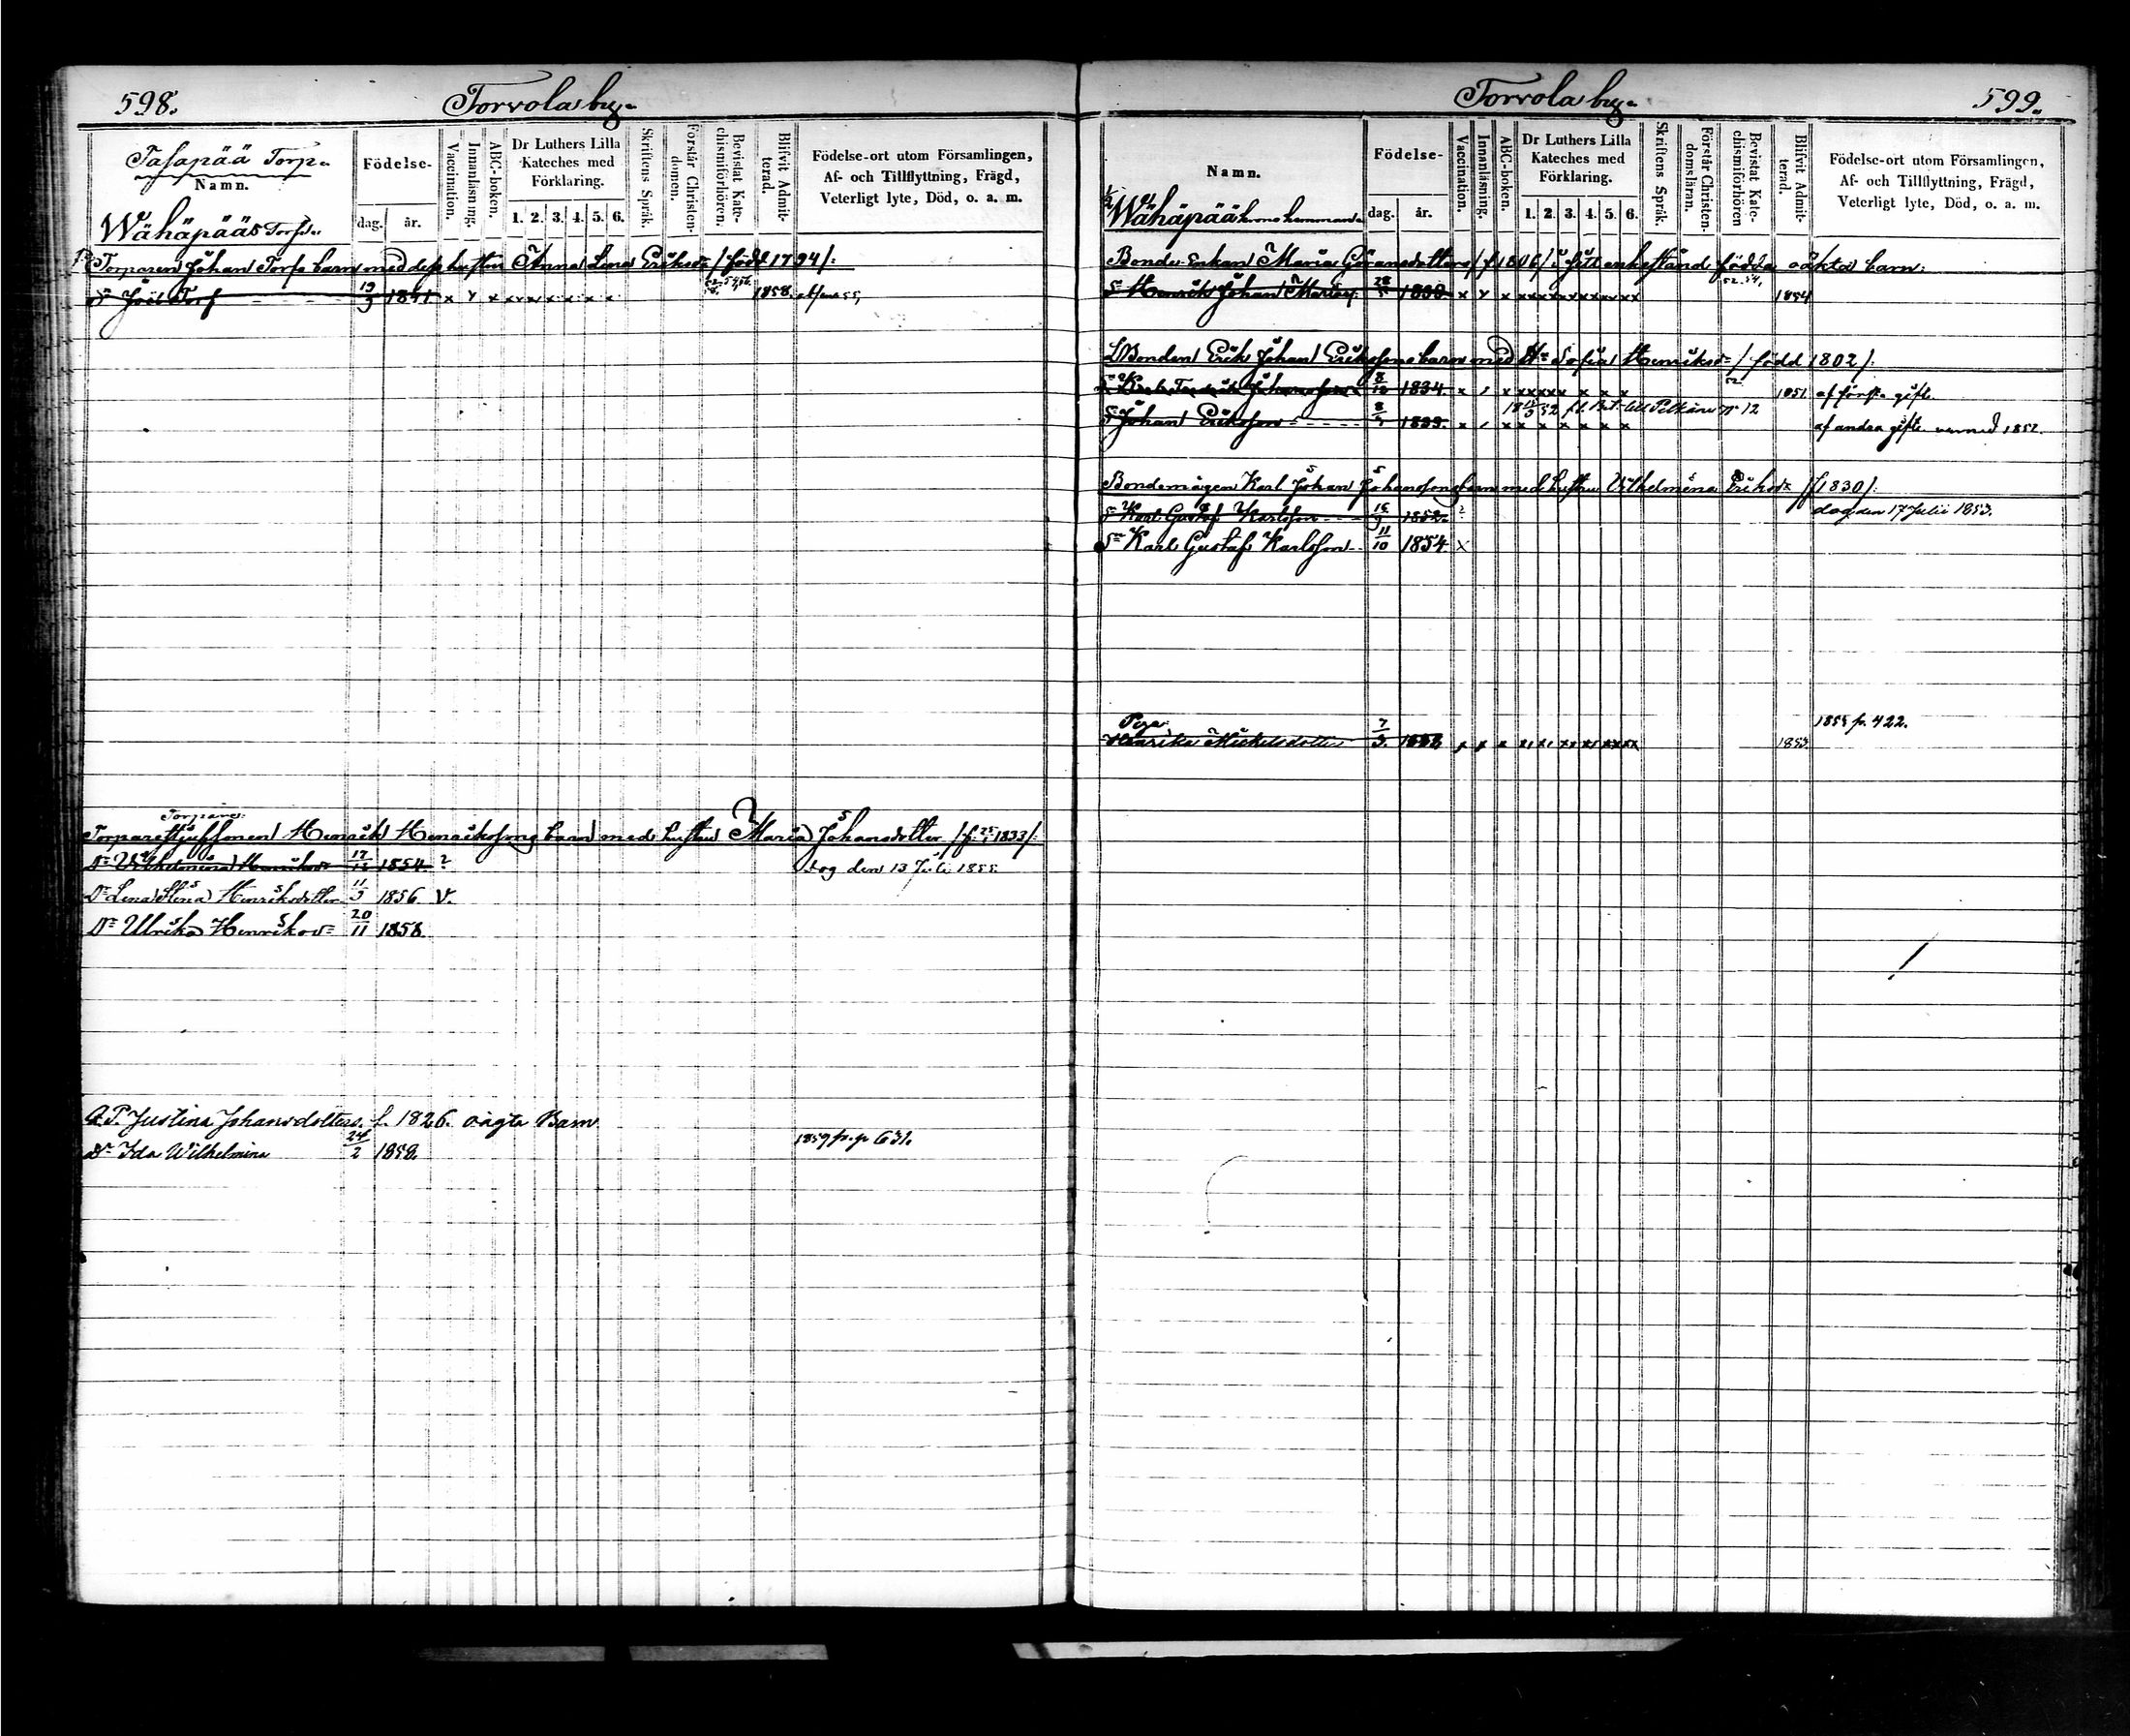 598.
Torvola by.
Tasapää Torp.
Namn.
Wähäpää Torp.
Födelse-
dag.
år.
Vaccination.
Innanläsning.
ABC-boken.
Dr Luthers Lilla
Kateches med
Förklaring.
1. 2. 3. 4. 5. 6.
Skriftens Språk.
Förstår Christen-
domen.
Bevistat Kate-
chismiförhören.
Blifvit Admit-
terad.
Födelse-ort utom Församlingen,
Af- och Tillflyttning, Frägd,
Veterligt lyte, Död, o. a. m.
Torparen Johan Torps barn med dess hustru Anna Lena Eriksdr /: född 1794 /:
1841 x x x x x x x x x 1858.
Torpare
Torparestjufsonen Henrik Henrikssons barn med hustru Maria Johansdotter /: f. 1833 /:
Dr Wilhelmina Henriksdr 17/12 1854. ? dog den 13 Juli 1855.
Dr Lena Stina Henriksdotter 11/9 1856 v.
Dr Ulrika Henriksdr 20/11 1858.
Justina Johansdotters. f. 1826. oägta Barn
Dr Ida Wilhelmina 24/2 1858. 1859 p. 631.
599.
Torvola by.
Namn.
Wähäpää krono hemman
Födelse-
dag.
år.
Vaccination.
Innanläsning.
ABC-boken.
Dr Luthers Lilla
Kateches med
Förklaring.
1. 2. 3. 4. 5. 6.
Skriftens Språk.
Förstår Christen-
domsläran.
Bevistat Kate-
chismiförhören
Blifvit Admit-
terad.
Födelse-ort utom Församlingen,
Af- och Tillflyttning, Frägd,
Veterligt lyte, Död, o. a. m.
Bonde Enkan Maria Göransdotters /: f 1806 /: i sitt enkestånd födda oäkta barn:
Sn Henrik Johan 1854
Bonden Erik Johan Erikssons barn med Sofia Henriksdr /: född 1802 /:
1834. 1851. af första gifte.
Sn Johan Eriksson af andra gifte 1852.
Bondemågen Karl Johan Johanssons barn med hustru Wilhelmina Eriksdr /: f 1830 /:
Sn Karl Gustaf Karlsson 1852. ? dog den 17 Julii 1853.
Sn Karl Gustaf Karlsson 11/10 1854 x
Piga 1855 p. 422.
Henrika Mickelsdotter 7/3 1853